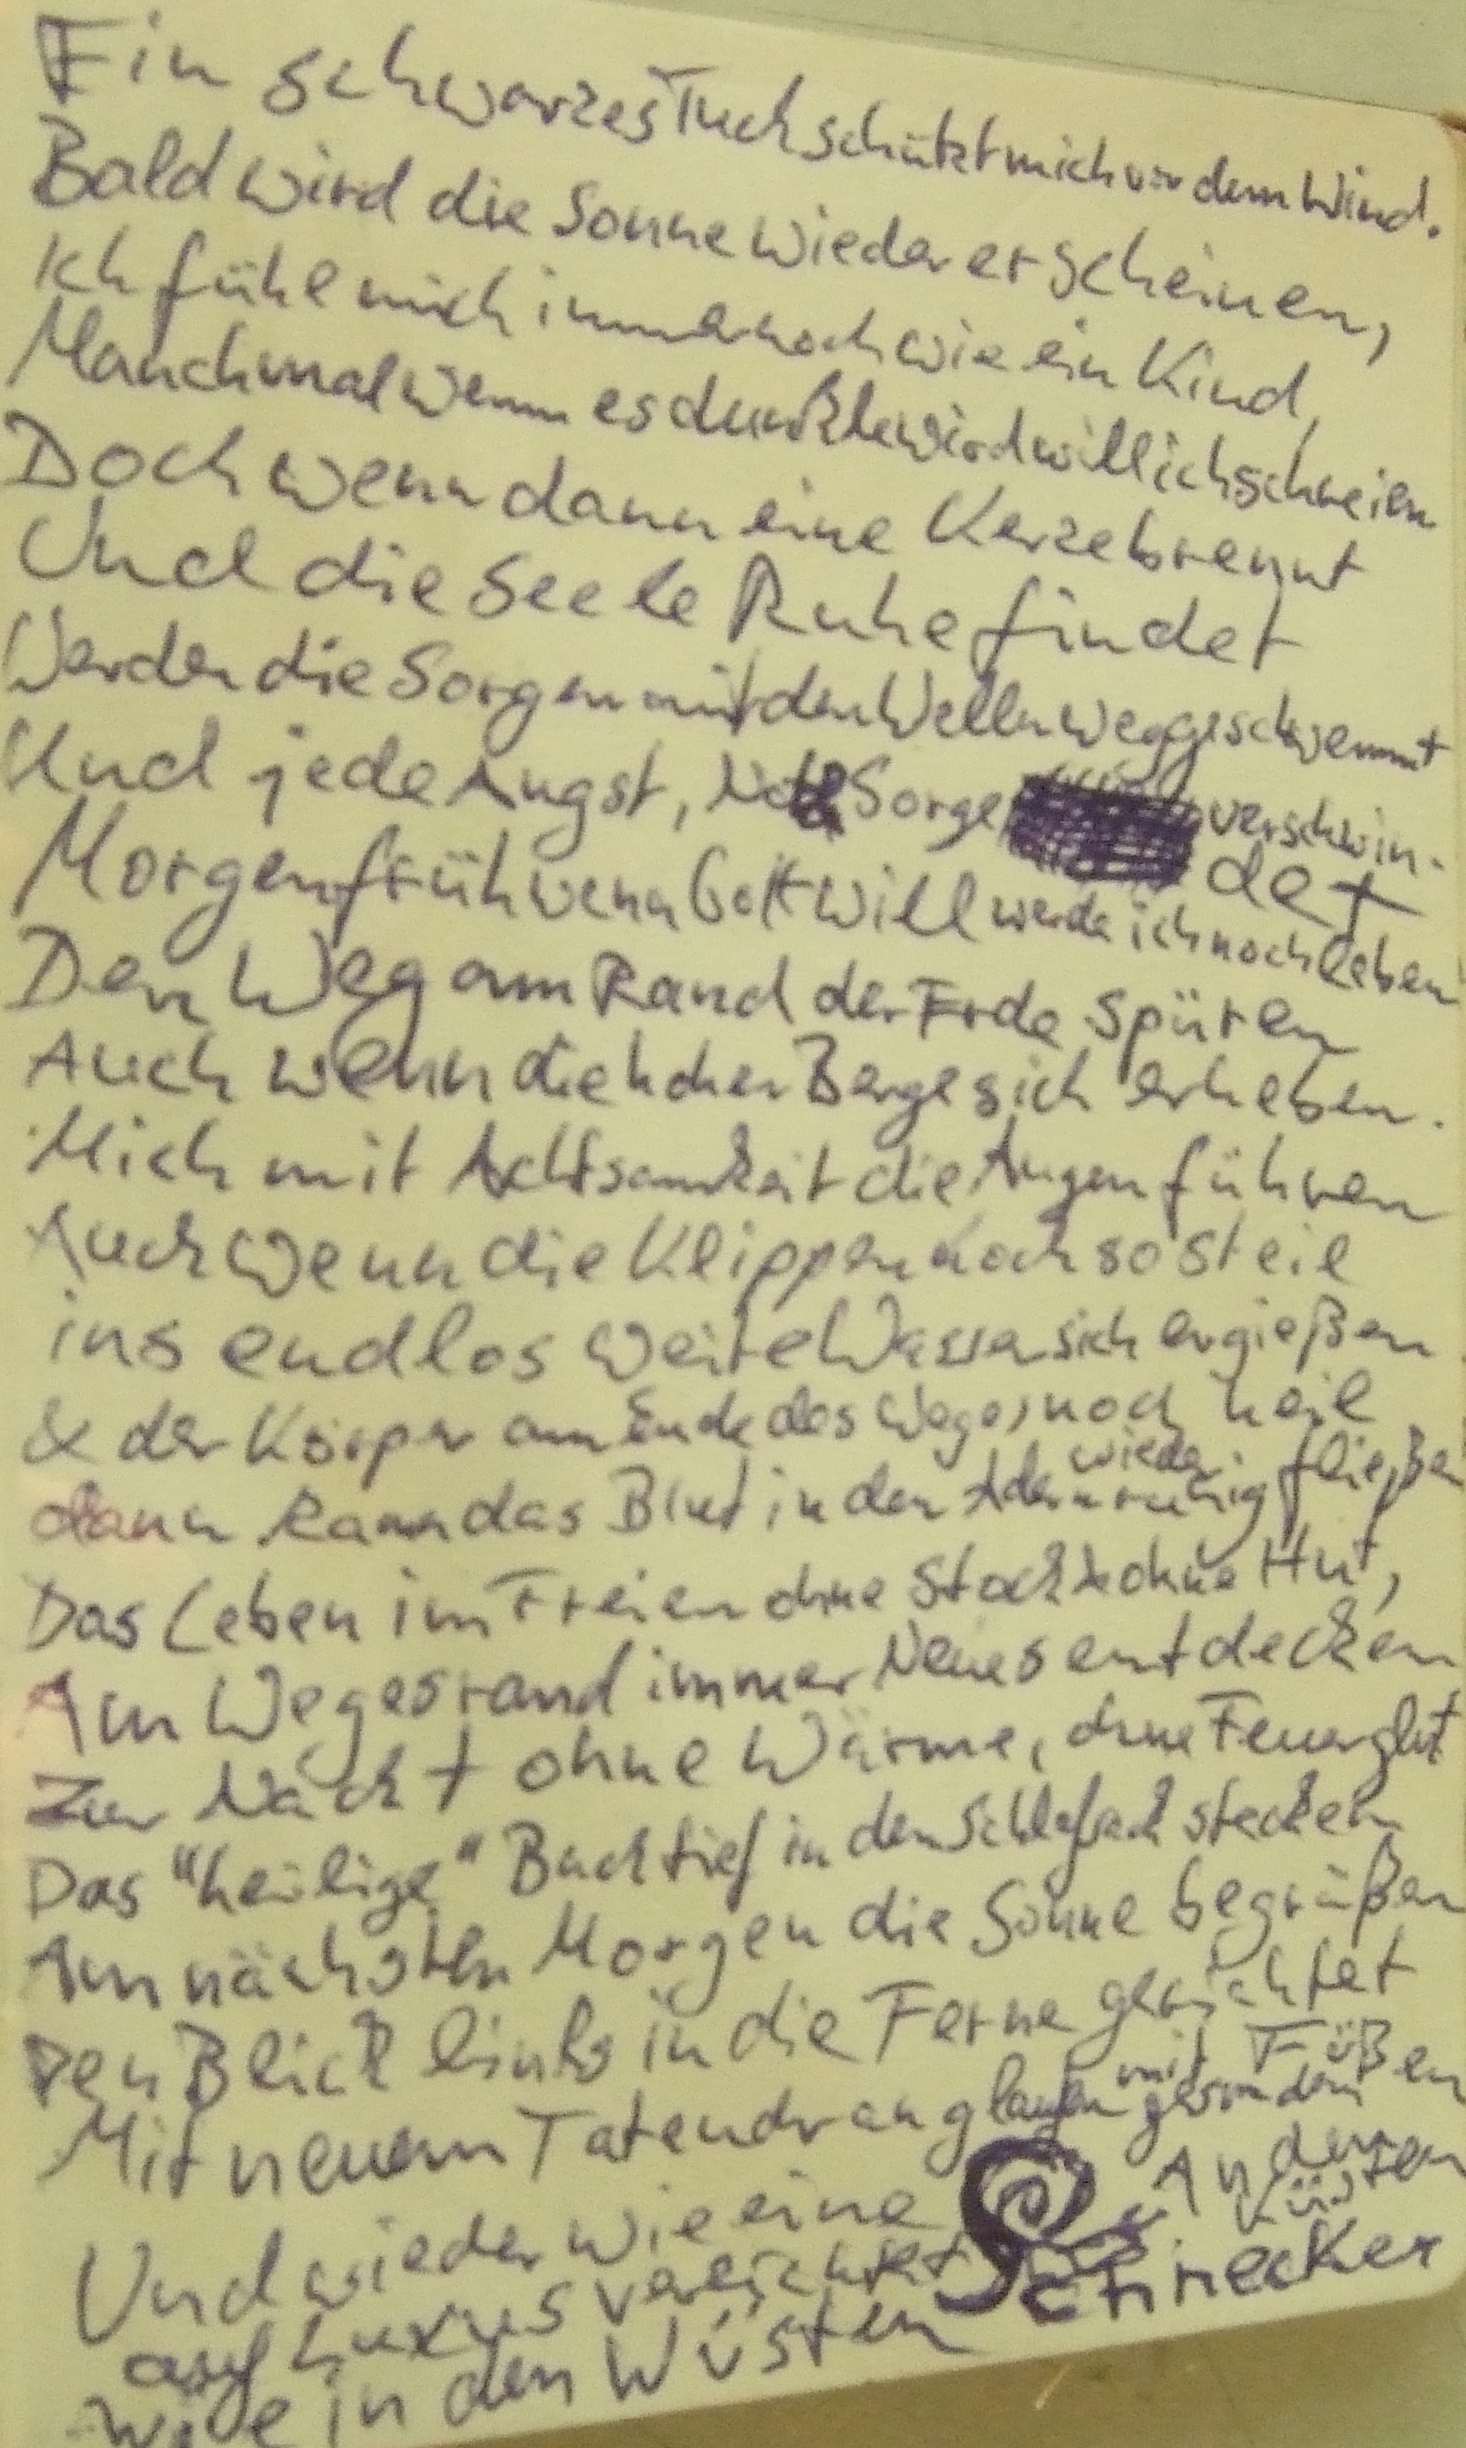 Ein schwarzes Tuch schützt mich vor dem Wind.
Bald wird die Sonne wieder erscheinen,
Ich fühle mich immer noch wie ein Kind,
Manchmal wenn es dunkle wird will ich schreien
Doch wenn dann eine Kerze brennt
Und die Seele Ruhe findet
Werden die Sorgen mit den Wellen weggeschwemmt
Und jede Angst, Not & Sorge verschwin-
det
Morgen früh wenn Gott will werde ich noch leben
Den Weg am Rand der Erde spüren
Auch wenn die hohen Berge sich erheben.
Mich mit Achtsamkeit die Augen führen
Auch wenn die Klippen noch so steil
ins endlos weite Wasser sich ergießen
& der Körper am Ende des Weges noch heil
dann kann das Blut in den Adern wieder ruhig fließen
Das Leben im Freien ohne Stock & ohne Hut,
Am Wegesrand immer Neues entdecken
Zur Nacht ohne Wärme, ohne Feuerglut
Das "heilige" Buch tief in den Schlafsack stecken
Am nächsten Morgen die Sonne begrüßen
Den Blick links in die Ferne gerichtet
Mit neuem Tatendrang laufen mit gesunden Füßen
Und wieder wie eine
auf Luxus verzichtet
Wie in den Wüsten
An den
Küsten
Schnecker